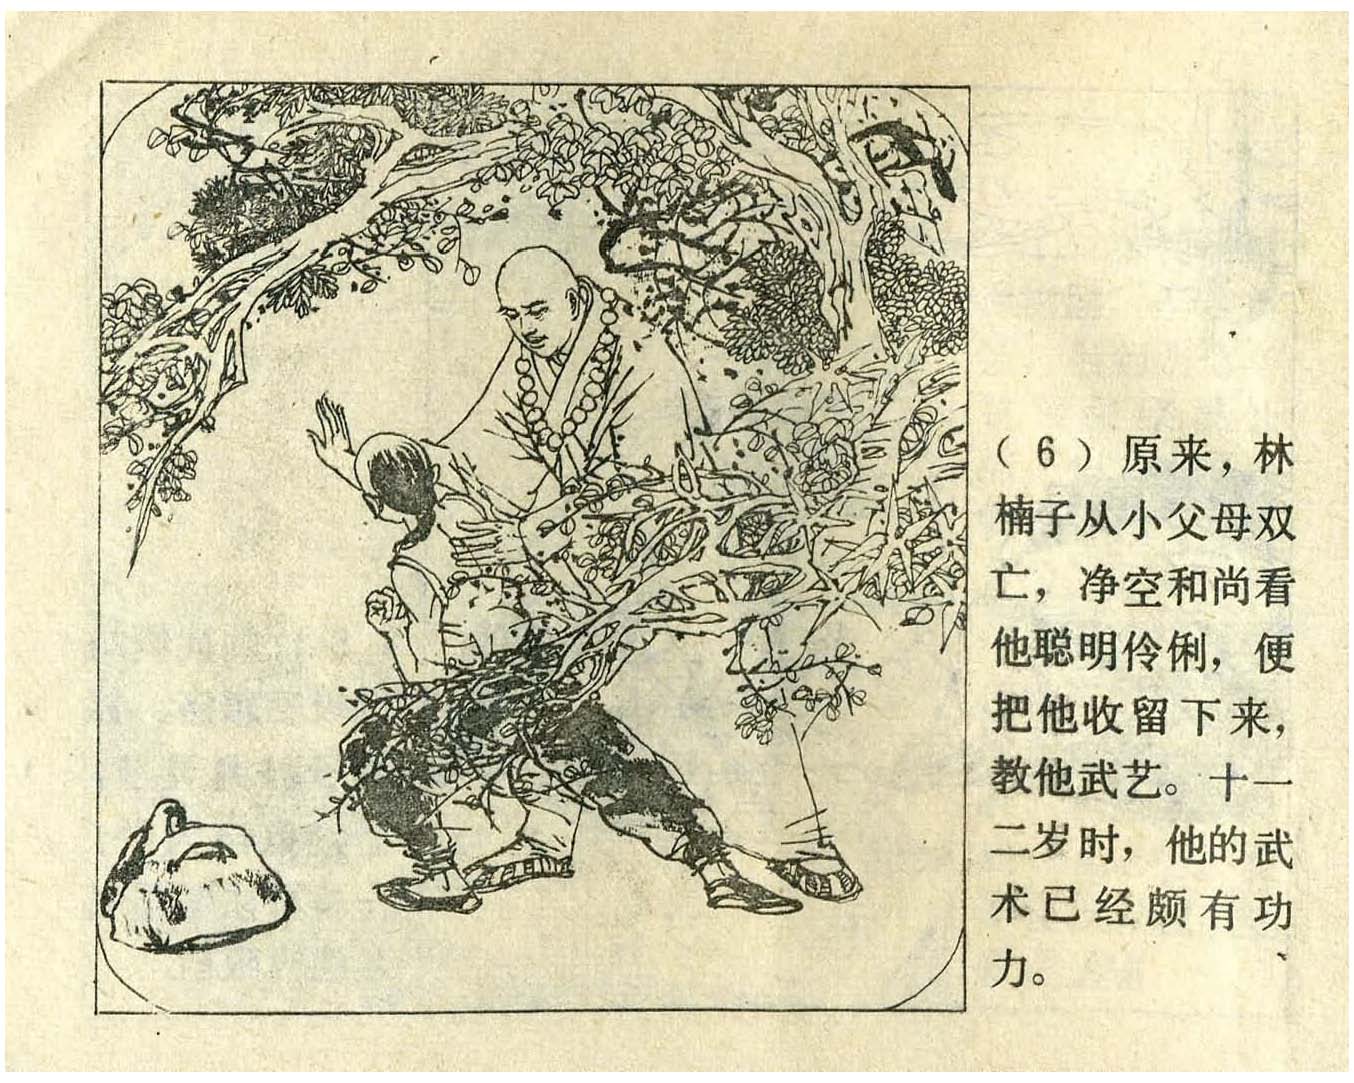 （6）原来，林
楠子从小父母双
亡，净空和尚看
他聪明伶俐，便
把他收留下来，
教他武艺。十一
二岁时，他的武
术已经颇有功
力。